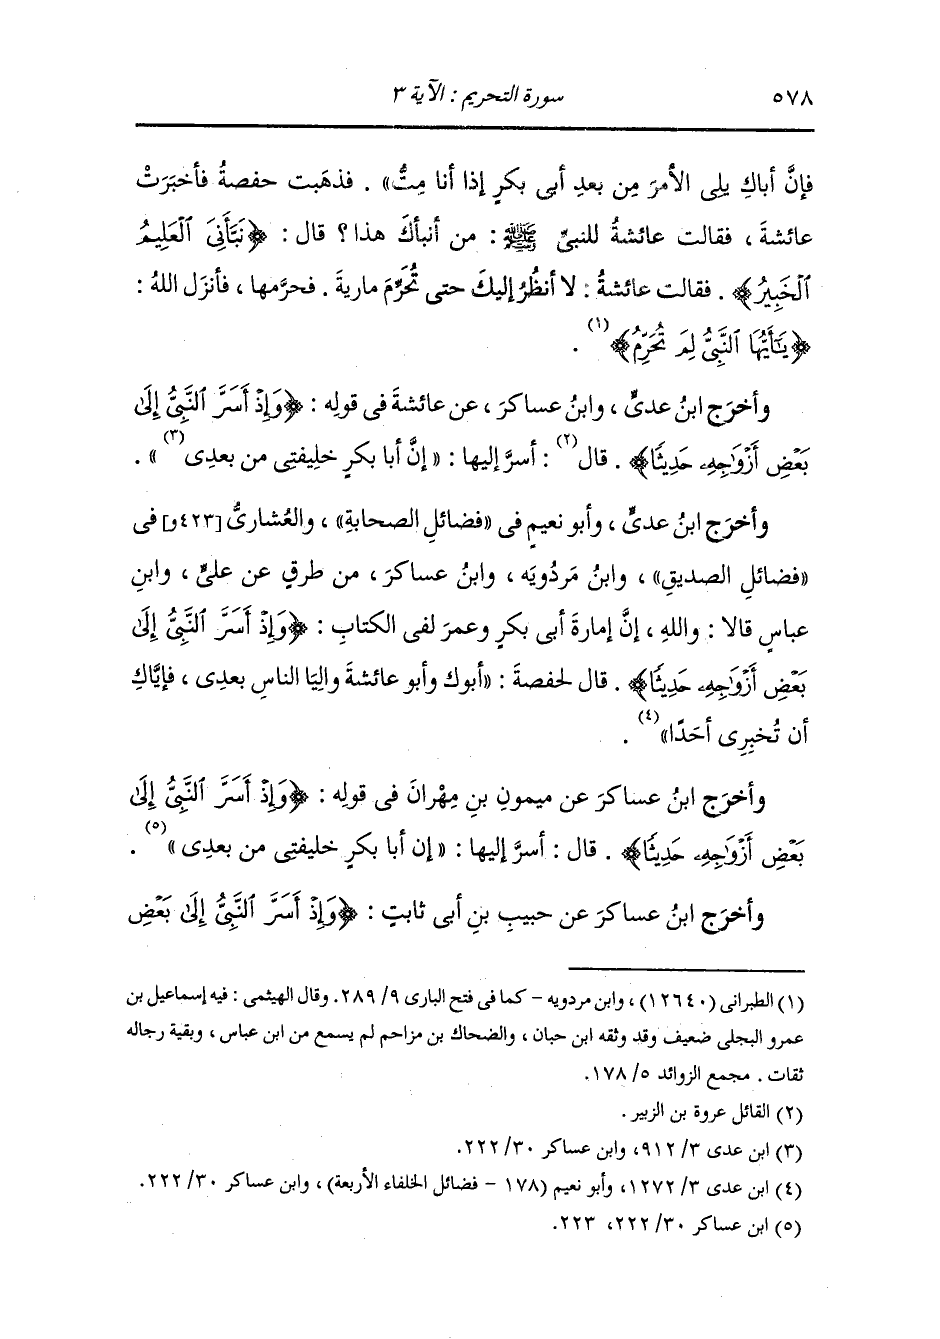 ٥٧٨ سورة التحريم : الآية ٣
فإنَّ أباكِ يلِى الأمرَ مِن بعدِ أبى بكرٍ إذا أنا مِتُّ» . فذهَبت حفصةُ فأخبَرَتْ
عائشةَ ، فقالت عائشةُ للنبىِّ ﷺ : من أنبأكَ هذا ؟ قال : ﴿نَبَّأَنِىَ ٱلْعَلِيمُ
ٱلْخَبِيرُ﴾ . فقالت عائشةُ : لا أنظُرُ إليكَ حتى تُحَرِّمَ ماريةَ . فحرَّمها ، فأنزَل اللهُ :
﴿يَـٰٓأَيُّهَا ٱلنَّبِىُّ لِمَ تُحَرِّمُ﴾ (١) .
وأخرَج ابنُ عدىٍّ ، وابنُ عساكرَ ، عن عائشةَ فى قولِه : ﴿وَإِذْ أَسَرَّ ٱلنَّبِىُّ إِلَىٰ
بَعْضِ أَزْوَٰجِهِۦ حَدِيثًا﴾ . قال (٢) : أسرَّ إليها : « إنَّ أبا بكرٍ خليفتِى من بعدِى (٣) » .
وأخرَج ابنُ عدىٍّ ، وأبو نعيمٍ فى «فضائلِ الصحابةِ» ، والعُشارىُّ [٤٢٣و] فى
«فضائلِ الصديقِ» ، وابنُ مَردُويَه ، وابنُ عساكرَ ، من طرقٍ عن علىٍّ ، وابنِ
عباسٍ قالا : واللهِ ، إنَّ إمارةَ أبى بكرٍ وعمرَ لفى الكتابِ : ﴿وَإِذْ أَسَرَّ ٱلنَّبِىُّ إِلَىٰ
بَعْضِ أَزْوَٰجِهِۦ حَدِيثًا﴾ . قال لحفصةَ : «أبوك وأبو عائشةَ والِيَا الناسِ بعدِى ، فإيَّاكِ
أن تُخبِرِى أحَدًا» (٤) .
وأخرَج ابنُ عساكرَ عن ميمونِ بنِ مِهْرانَ فى قولِه : ﴿وَإِذْ أَسَرَّ ٱلنَّبِىُّ إِلَىٰ
بَعْضِ أَزْوَٰجِهِۦ حَدِيثًا﴾ . قال : أسرَّ إليها : « إن أبا بكرٍ خليفتِى من بعدِى » (٥) .
وأخرَج ابنُ عساكرَ عن حبيبِ بنِ أبى ثابتٍ : ﴿وَإِذْ أَسَرَّ ٱلنَّبِىُّ إِلَىٰ بَعْضِ
(١) الطبرانى (١٢٦٤٠) ، وابن مردويه – كما فى فتح البارى ٩/ ٢٨٩. وقال الهيثمى : فيه إسماعيل بن
عمرو البجلى ضعيف وقد وثقه ابن حبان ، والضحاك بن مزاحم لم يسمع من ابن عباس ، وبقية رجاله
ثقات . مجمع الزوائد ٥/ ١٧٨.
(٢) القائل عروة بن الزبير .
(٣) ابن عدى ٣/ ٩١٢، وابن عساكر ٣٠/ ٢٢٢.
(٤) ابن عدى ٣/ ١٢٧٢، وأبو نعيم (١٧٨ – فضائل الخلفاء الأربعة) ، وابن عساكر ٣٠/ ٢٢٢.
(٥) ابن عساكر ٣٠/ ٢٢٢، ٢٢٣.